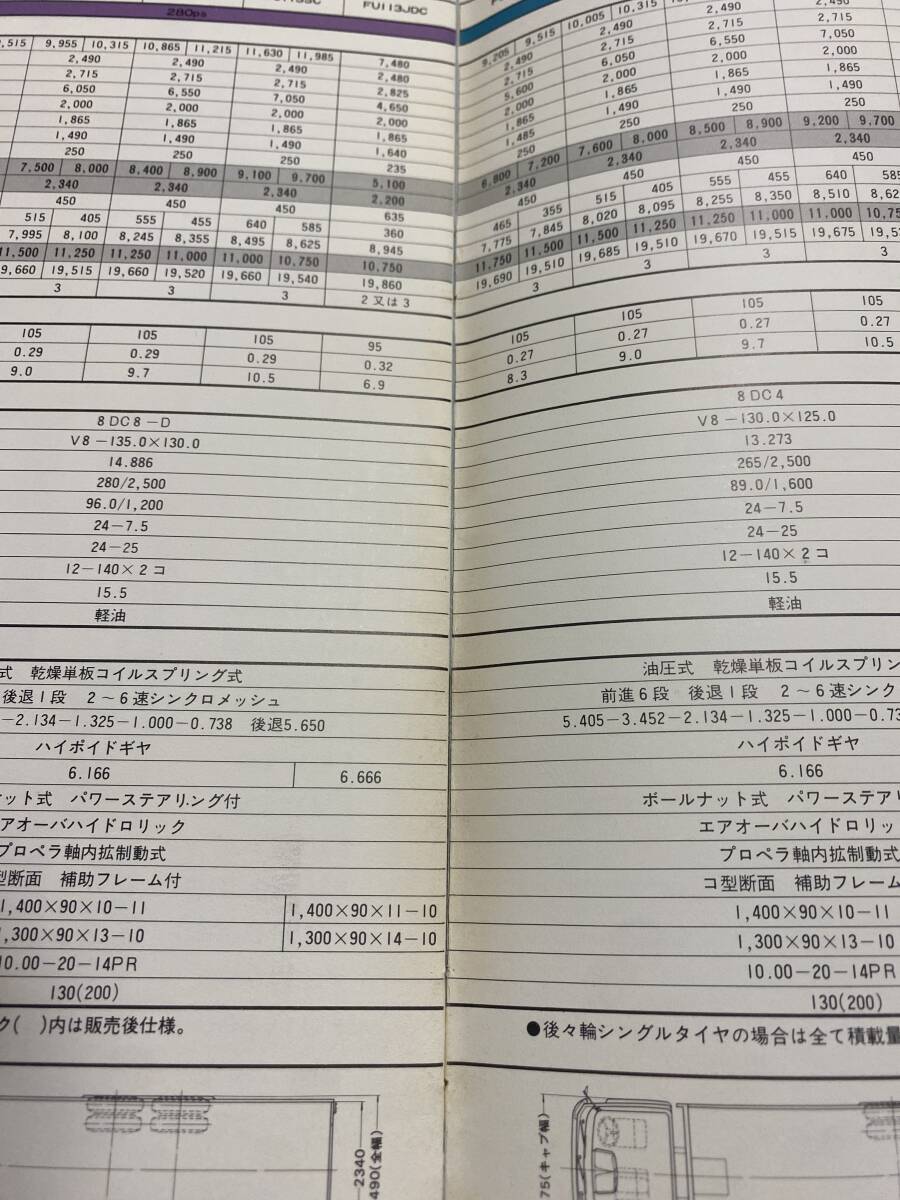 FU113JDC
280ps
9,955 10,315 10,865 11,215 11,630 11,985 7,480
2,490 2,490 2,490 2,480
2,715 2,715 2,715 2,825
6,050 6,550 7,050 4,650
2,000 2,000 2,000 2,000
1,865 1,865 1,865 1,865
1,490 1,490 1,490 1,640
250 250 250 235
7,500 8,000 8,400 8,900 9,100 9,700 5,100
2,340 2,340 2,340 2,200
450 450 450 635
515 405 555 455 640 585 360
7,995 8,100 8,245 8,355 8,495 8,625 8,945
11,500 11,250 11,250 11,000 11,000 10,750 10,750
19,660 19,515 19,660 19,520 19,660 19,540 19,860
3 3 3 2又は3
105 105 105 95
0.29 0.29 0.29 0.32
9.0 9.7 10.5 6.9
8DC8-D
V8-135.0×130.0
14.886
280/2,500
96.0/1,200
24-7.5
24-25
12-140×2コ
15.5
軽油
式 乾燥単板コイルスプリング式
後退1段 2～6速シンクロメッシュ
-2.134-1.325-1.000-0.738 後退5.650
ハイポイドギヤ
6.166 6.666
ナット式 パワーステアリング付
アオーバハイドロリック
プロペラ軸内拡制動式
型断面 補助フレーム付
1,400×90×10-11 1,400×90×11-10
1,300×90×13-10 1,300×90×14-10
10.00-20-14PR
130(200)
ク( )内は販売後仕様。
2340
490(全幅)
9,205 9,515 10,005 10,315
2,490 2,490 2,490 2,490
2,715 2,715 2,715 2,715
5,600 6,050 6,550 7,050
2,000 2,000 2,000 2,000
1,865 1,865 1,865 1,865
1,485 1,490 1,490 1,490
250 250 250 250
6,800 7,200 7,600 8,000 8,500 8,900 9,200 9,700
2,340 2,340 2,340 2,340
450 450 450 450
465 355 515 405 555 455 640 585
7,775 7,845 8,020 8,095 8,255 8,350 8,510 8,62
11,750 11,500 11,500 11,250 11,250 11,000 11,000 10,75
19,690 19,510 19,685 19,510 19,670 19,515 19,675
3 3 3 3
105 105 105 105
0.27 0.27 0.27 0.27
8.3 9.0 9.7 10.5
8DC4
V8-130.0×125.0
13.273
265/2,500
89.0/1,600
24-7.5
24-25
12-140×2コ
15.5
軽油
油圧式 乾燥単板コイルスプリン
前進6段 後退1段 2～6速シンク
5.405-3.452-2.134-1.325-1.000-0.73
ハイポイドギヤ
6.166
ボールナット式 パワーステア
エアオーバハイドロリッ
プロペラ軸内拡制動式
コ型断面 補助フレーム
1,400×90×10-11
1,300×90×13-10
10.00-20-14PR
130(200)
●後々輪シングルタイヤの場合は全て積載量
75(キャブ幅)